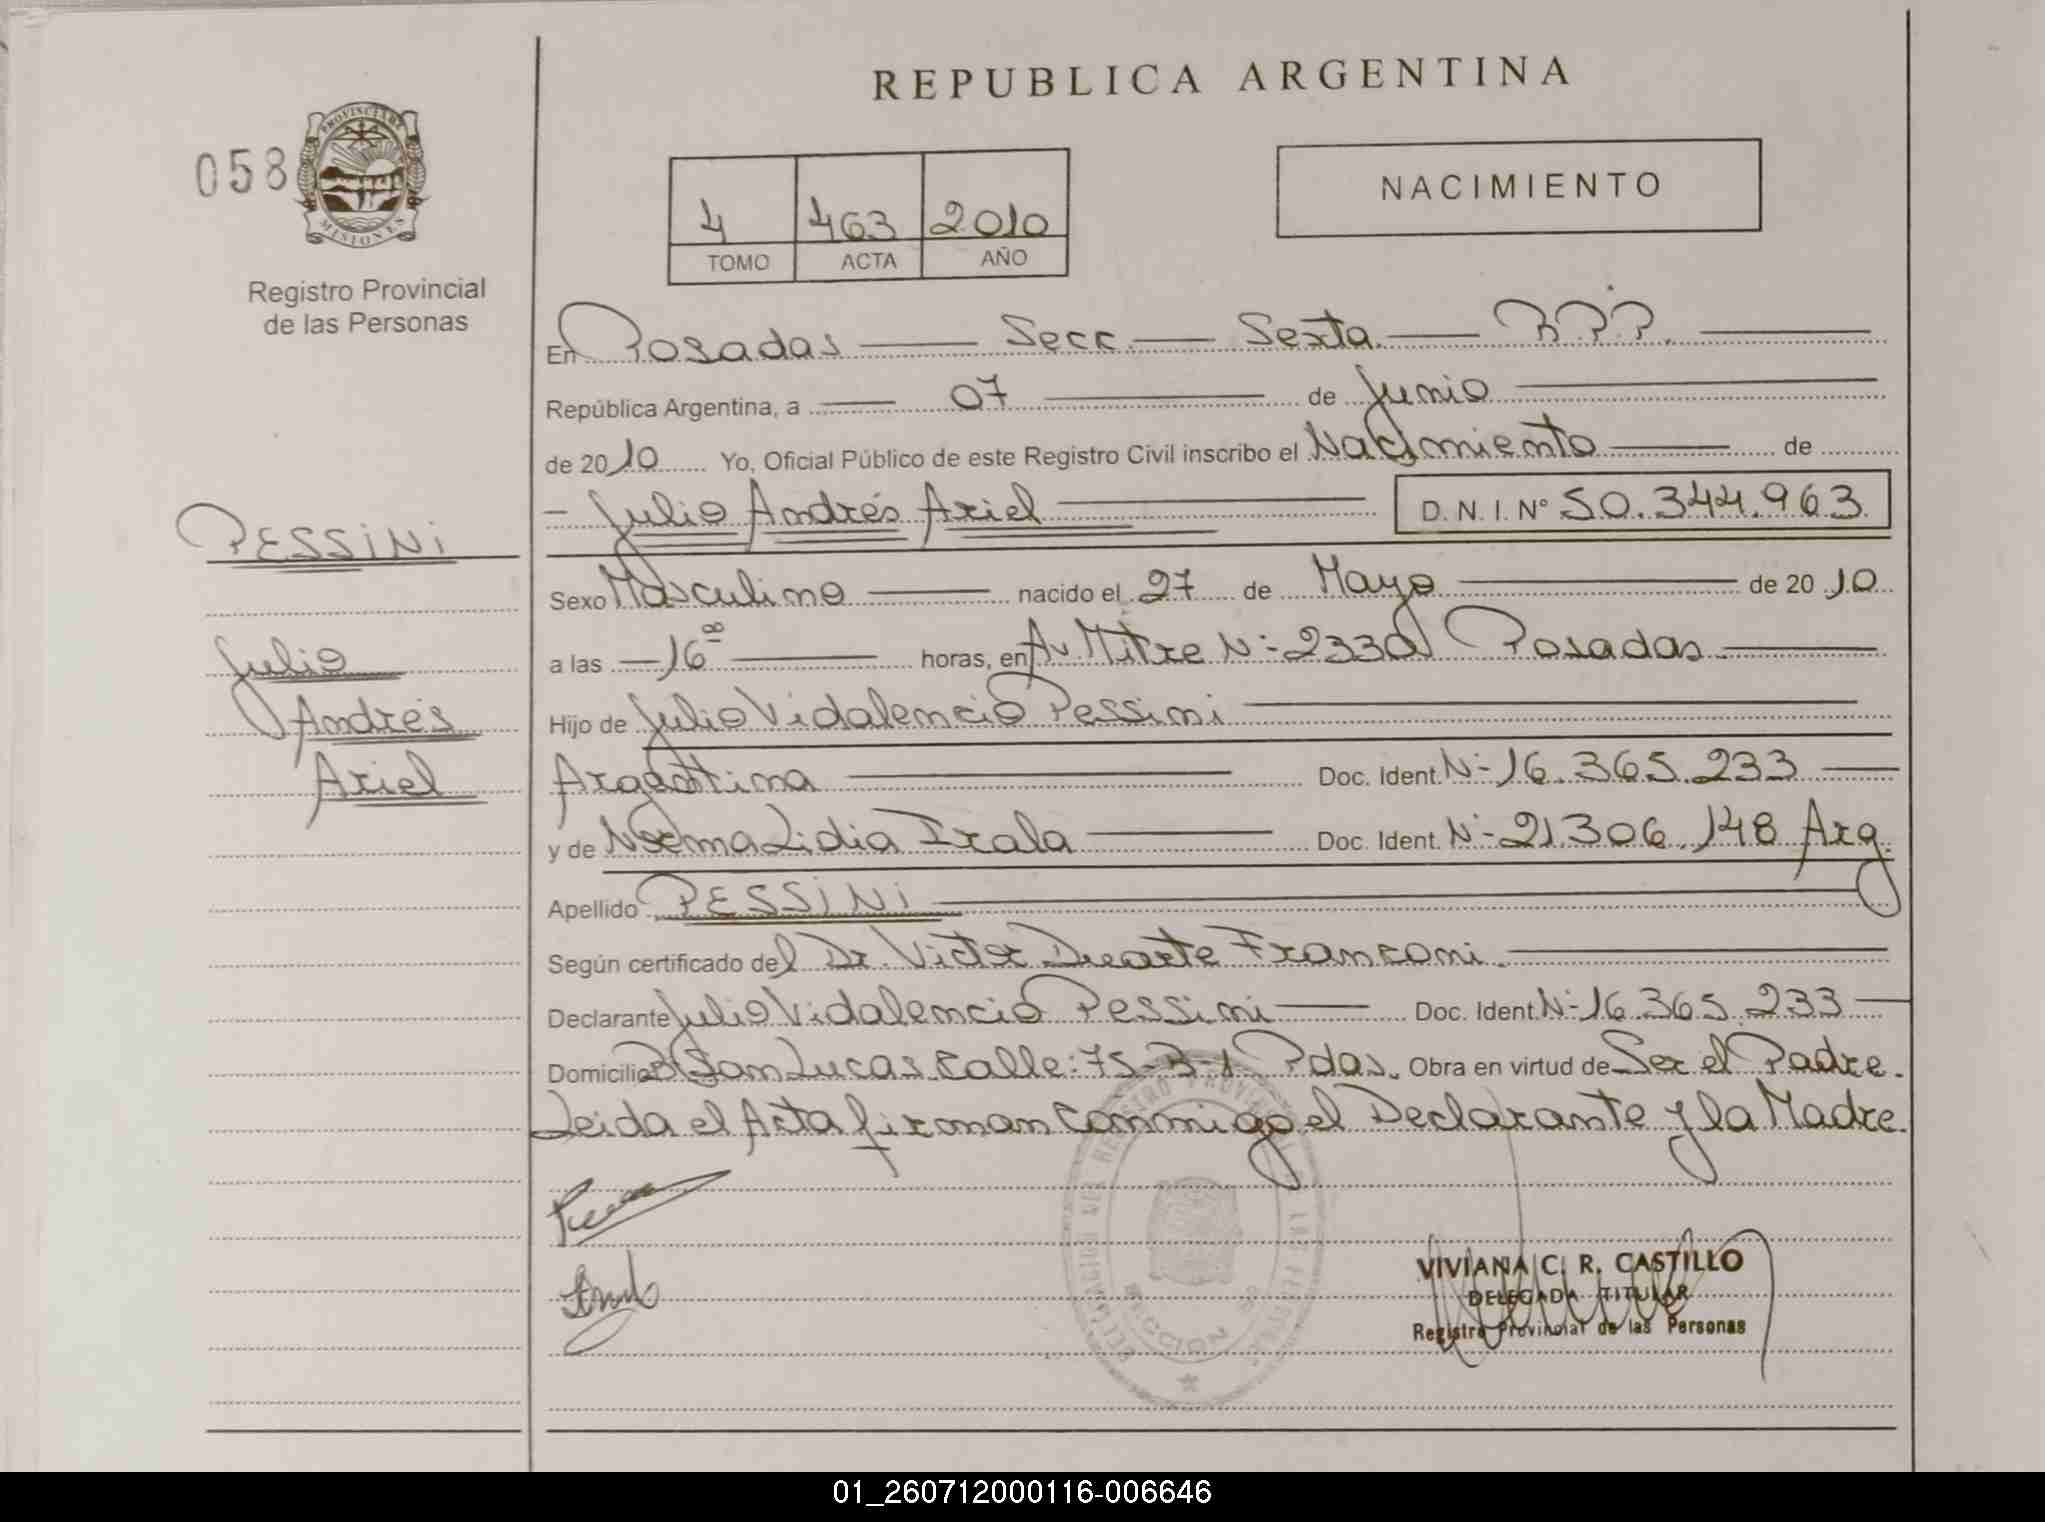 REPUBLICA ARGENTINA
058
PROVINCIA DE
MISIONES
Registro Provincial
de las Personas
4 463 2010
TOMO ACTA AÑO
NACIMIENTO
En Posadas Secc. Sexta. R.P.P.
República Argentina, a 07 de Junio
de 2010 Yo, Oficial Público de este Registro Civil inscribo el Nacimiento de
Julio Andrés Ariel D.N.I. Nº 50.344.963
PESSINI
Julio
Andrés
Ariel
Sexo Masculino nacido el 27 de Mayo de 2010
a las 16 00 horas, en Av. Mitre Nº 2330 Posadas
Hijo de Julio Vidalencio Pessini
Argentina Doc. Ident. Nº 16.365.233
y de Norma Lidia Irala Doc. Ident. Nº 21.306.148 Arg.
Apellido PESSINI
Según certificado del Dr. Victor Duarte Franconi.
Declarante Julio Vidalencio Pessini Doc. Ident. Nº 16.365.233
Domicilio Bº San Lucas Calle: 75-3-1 Pdas. Obra en virtud de Ser el Padre.
Leida el Acta firman conmigo el Declarante y la Madre.
VIVIANA C. R. CASTILLO
DELEGADA TITULAR
Registro Provincial de las Personas
01_260712000116-006646